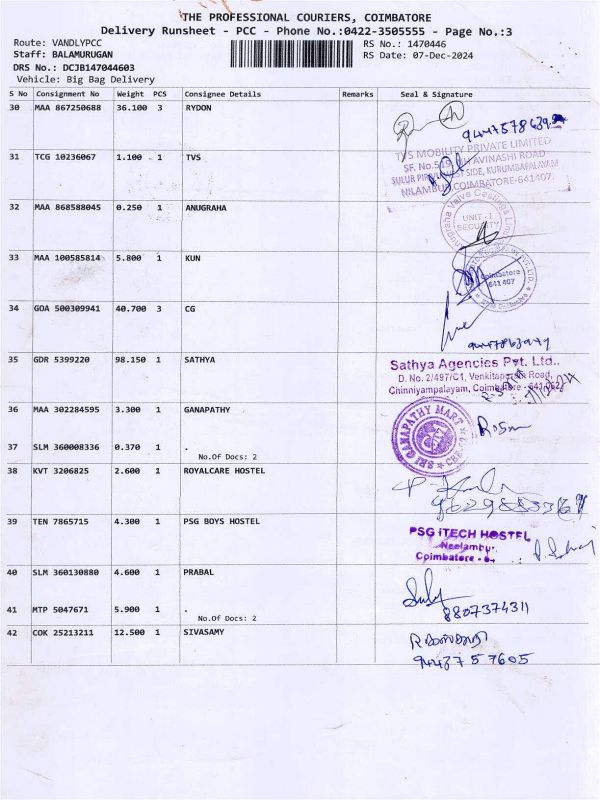 THE PROFESSIONAL COURIERS, COIMBATORE
Delivery Runsheet - PCC - Phone No.:0422-3505555 - Page No.:3
Route: VANDLYPCC
RS No.: 1470446
Staff: BALAMURUGAN
RS Date: 07-Dec-2024
DRS No.: DCJB147044603
Vehicle: Big Bag Delivery
S No Consignment No Weight PCS Consignee Details Remarks Seal & Signature
30 MAA 867250688 36.100 3 RYDON
31 TCG 10236067 1.100 1 TVS
TVS MOBILITY PRIVATE LIMITED
AVINASHI ROAD
SIDE, KURUMBAPALAYAM
NILAMBUR, COIMBATORE-641407.
32 MAA 868588045 0.250 1 ANUGRAHA
Anugraha Valve Castings Limited
UNIT - 1
SECURITY
33 MAA 100585814 5.800 1 KUN
Coimbatore
641 407
34 GOA 500309941 40.700 3 CG
35 GDR 5399220 98.150 1 SATHYA
Sathya Agencies Pvt. Ltd.,
D. No. 2/497/C1, Venkitapuram Road,
Chinniyampalayam, Coimbatore - 641 062
36 MAA 302284595 3.300 1 GANAPATHY
SRI GANAPATHY MART
37 SLM 360008336 0.370 1 .
No.Of Docs: 2
38 KVT 3206825 2.600 1 ROYALCARE HOSTEL
39 TEN 7865715 4.300 1 PSG BOYS HOSTEL
PSG iTECH HOSTEL
Neelambur,
Coimbatore -
40 SLM 360130880 4.600 1 PRABAL
8807374311
41 MTP 5047671 5.900 1 .
No.Of Docs: 2
42 COK 25213211 12.500 1 SIVASAMY
9443757605